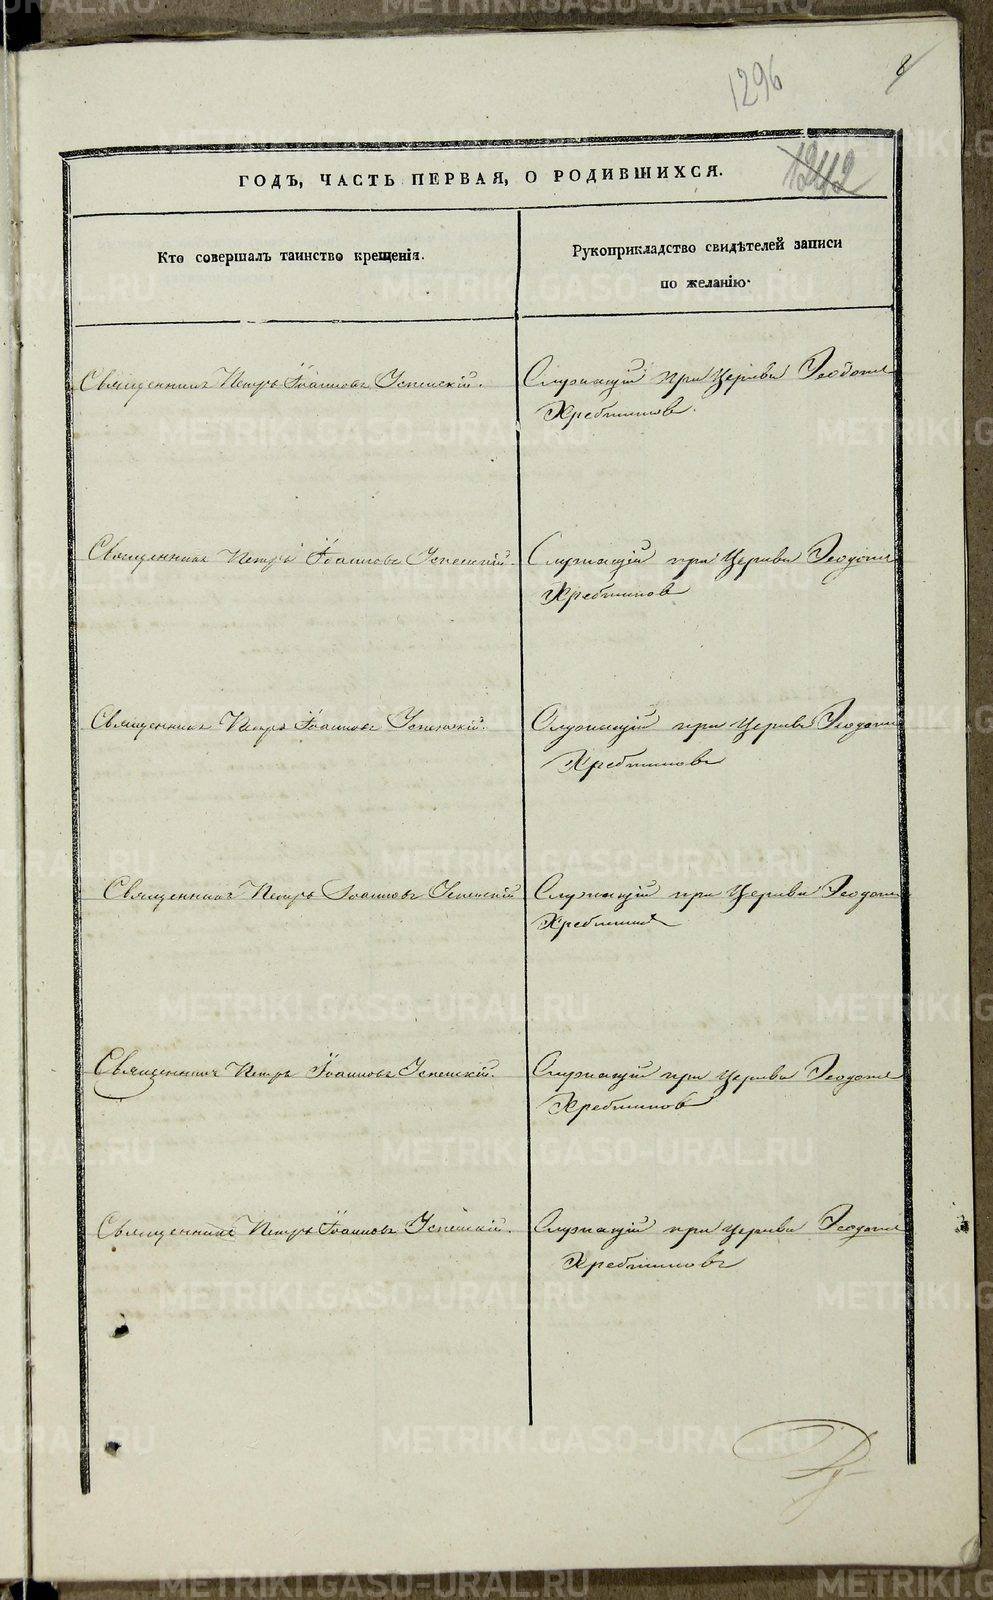 1296
8
1242
ГОДЪ, ЧАСТЬ ПЕРВАЯ, О РОДИВШИХСЯ.
Кто совершалъ таинство крещенія.
Рукоприкладство свидѣтелей записи
по желанію.
Священникъ Петръ Іоанновъ Успенскій.
Служащій при Церкви Ѳеодотъ
Хребтиковъ.
Священникъ Петръ Іоанновъ Успенскій.
Служащій при Церкви Ѳеодотъ
Хребтиковъ
Священникъ Петръ Іоанновъ Успенскій.
Служащій при Церкви Ѳеодотъ
Хребтиковъ
Священникъ Петръ Іоанновъ Успенскій
Служащій при Церкви Ѳеодотъ
Хребтиковъ
Священникъ Петръ Іоанновъ Успенскій.
Служащій при Церкви Ѳеодотъ
Хребтиковъ
Священникъ Петръ Іоанновъ Успенскій.
Служащій при Церкви Ѳеодотъ
Хребтиковъ
METRIKI.GASO-URAL.RU